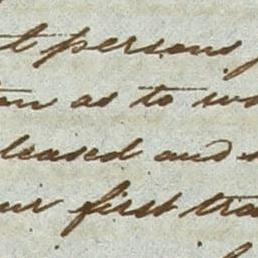 t persons
as to
leased and
ur first tra